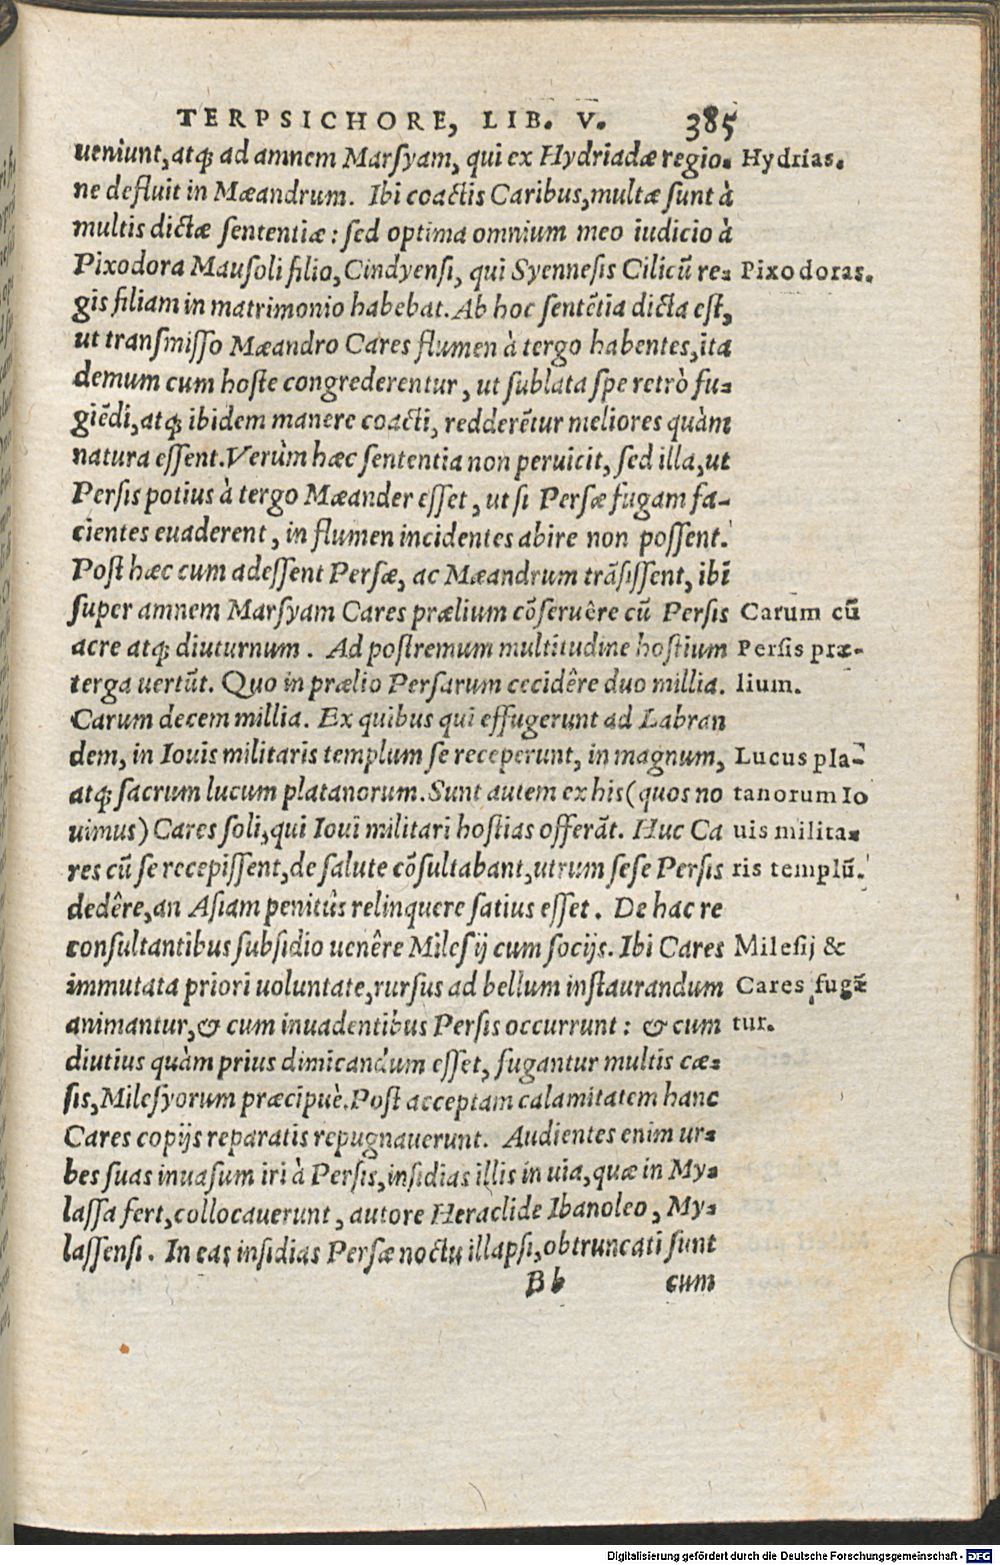 TERPSICHORE, LIB. V. 385
ueniunt, atq; ad amnem Marsyam, qui ex Hydriadæ regio- Hydrias.
ne defluit in Mæandrum. Ibi coactis Caribus, multæ sunt à
multis dictæ sententiæ: sed optima omnium meo iudicio à
Pixodora Mausoli filio, Cindyensi, qui Syennesis Cilicū re- Pixodoras.
gis filiam in matrimonio habebat. Ab hoc sentētia dicta est,
ut transmisso Mæandro Cares flumen à tergo habentes, ita
demum cum hoste congrederentur, ut sublata spe retrò fu-
giēdi, atq; ibidem manere coacti, redderētur meliores quàm
natura essent. Verùm hæc sententia non peruicit, sed illa, ut
Persis potius à tergo Mæander esset, ut si Persæ fugam fa-
cientes euaderent, in flumen incidentes abire non possent.
Post hæc cum adessent Persæ, ac Mæandrum trāsissent, ibi
super amnem Marsyam Cares prælium cōseruêre cū Persis Carum cū
acre atq; diuturnum. Ad postremum multitudine hostium Persis præ-
terga uertūt. Quo in prælio Persarum cecidêre duo millia. lium.
Carum decem millia. Ex quibus qui effugerunt ad Labran
dem, in Iouis militaris templum se receperunt, in magnum, Lucus pla-
atq; sacrum lucum platanorum. Sunt autem ex his (quos no tanorum Io
uimus) Cares soli, qui Ioui militari hostias offerāt. Huc Ca uis milita-
res cū se recepissent, de salute cōsultabant, utrum sese Persis ris templū.
dedêre, an Asiam penitùs relinquere satius esset. De hac re
consultantibus subsidio uenêre Milesij cum socijs. Ibi Cares Milesij &
immutata priori uoluntate, rursus ad bellum instaurandum Cares fugā
animantur, & cum inuadentibus Persis occurrunt: & cum tur.
diutius quàm prius dimicandum esset, fugantur multis cæ-
sis, Milesyorum præcipuè. Post acceptam calamitatem hanc
Cares copijs reparatis repugnauerunt. Audientes enim ur-
bes suas inuasum iri à Persis, insidias illis in uia, quæ in My-
lassa fert, collocauerunt, autore Heraclide Ibanoleo, My-
lassensi. In eas insidias Persæ noctu illapsi, obtruncati sunt
Bb cum
Digitalisierung gefördert durch die Deutsche Forschungsgemeinschaft - DFG